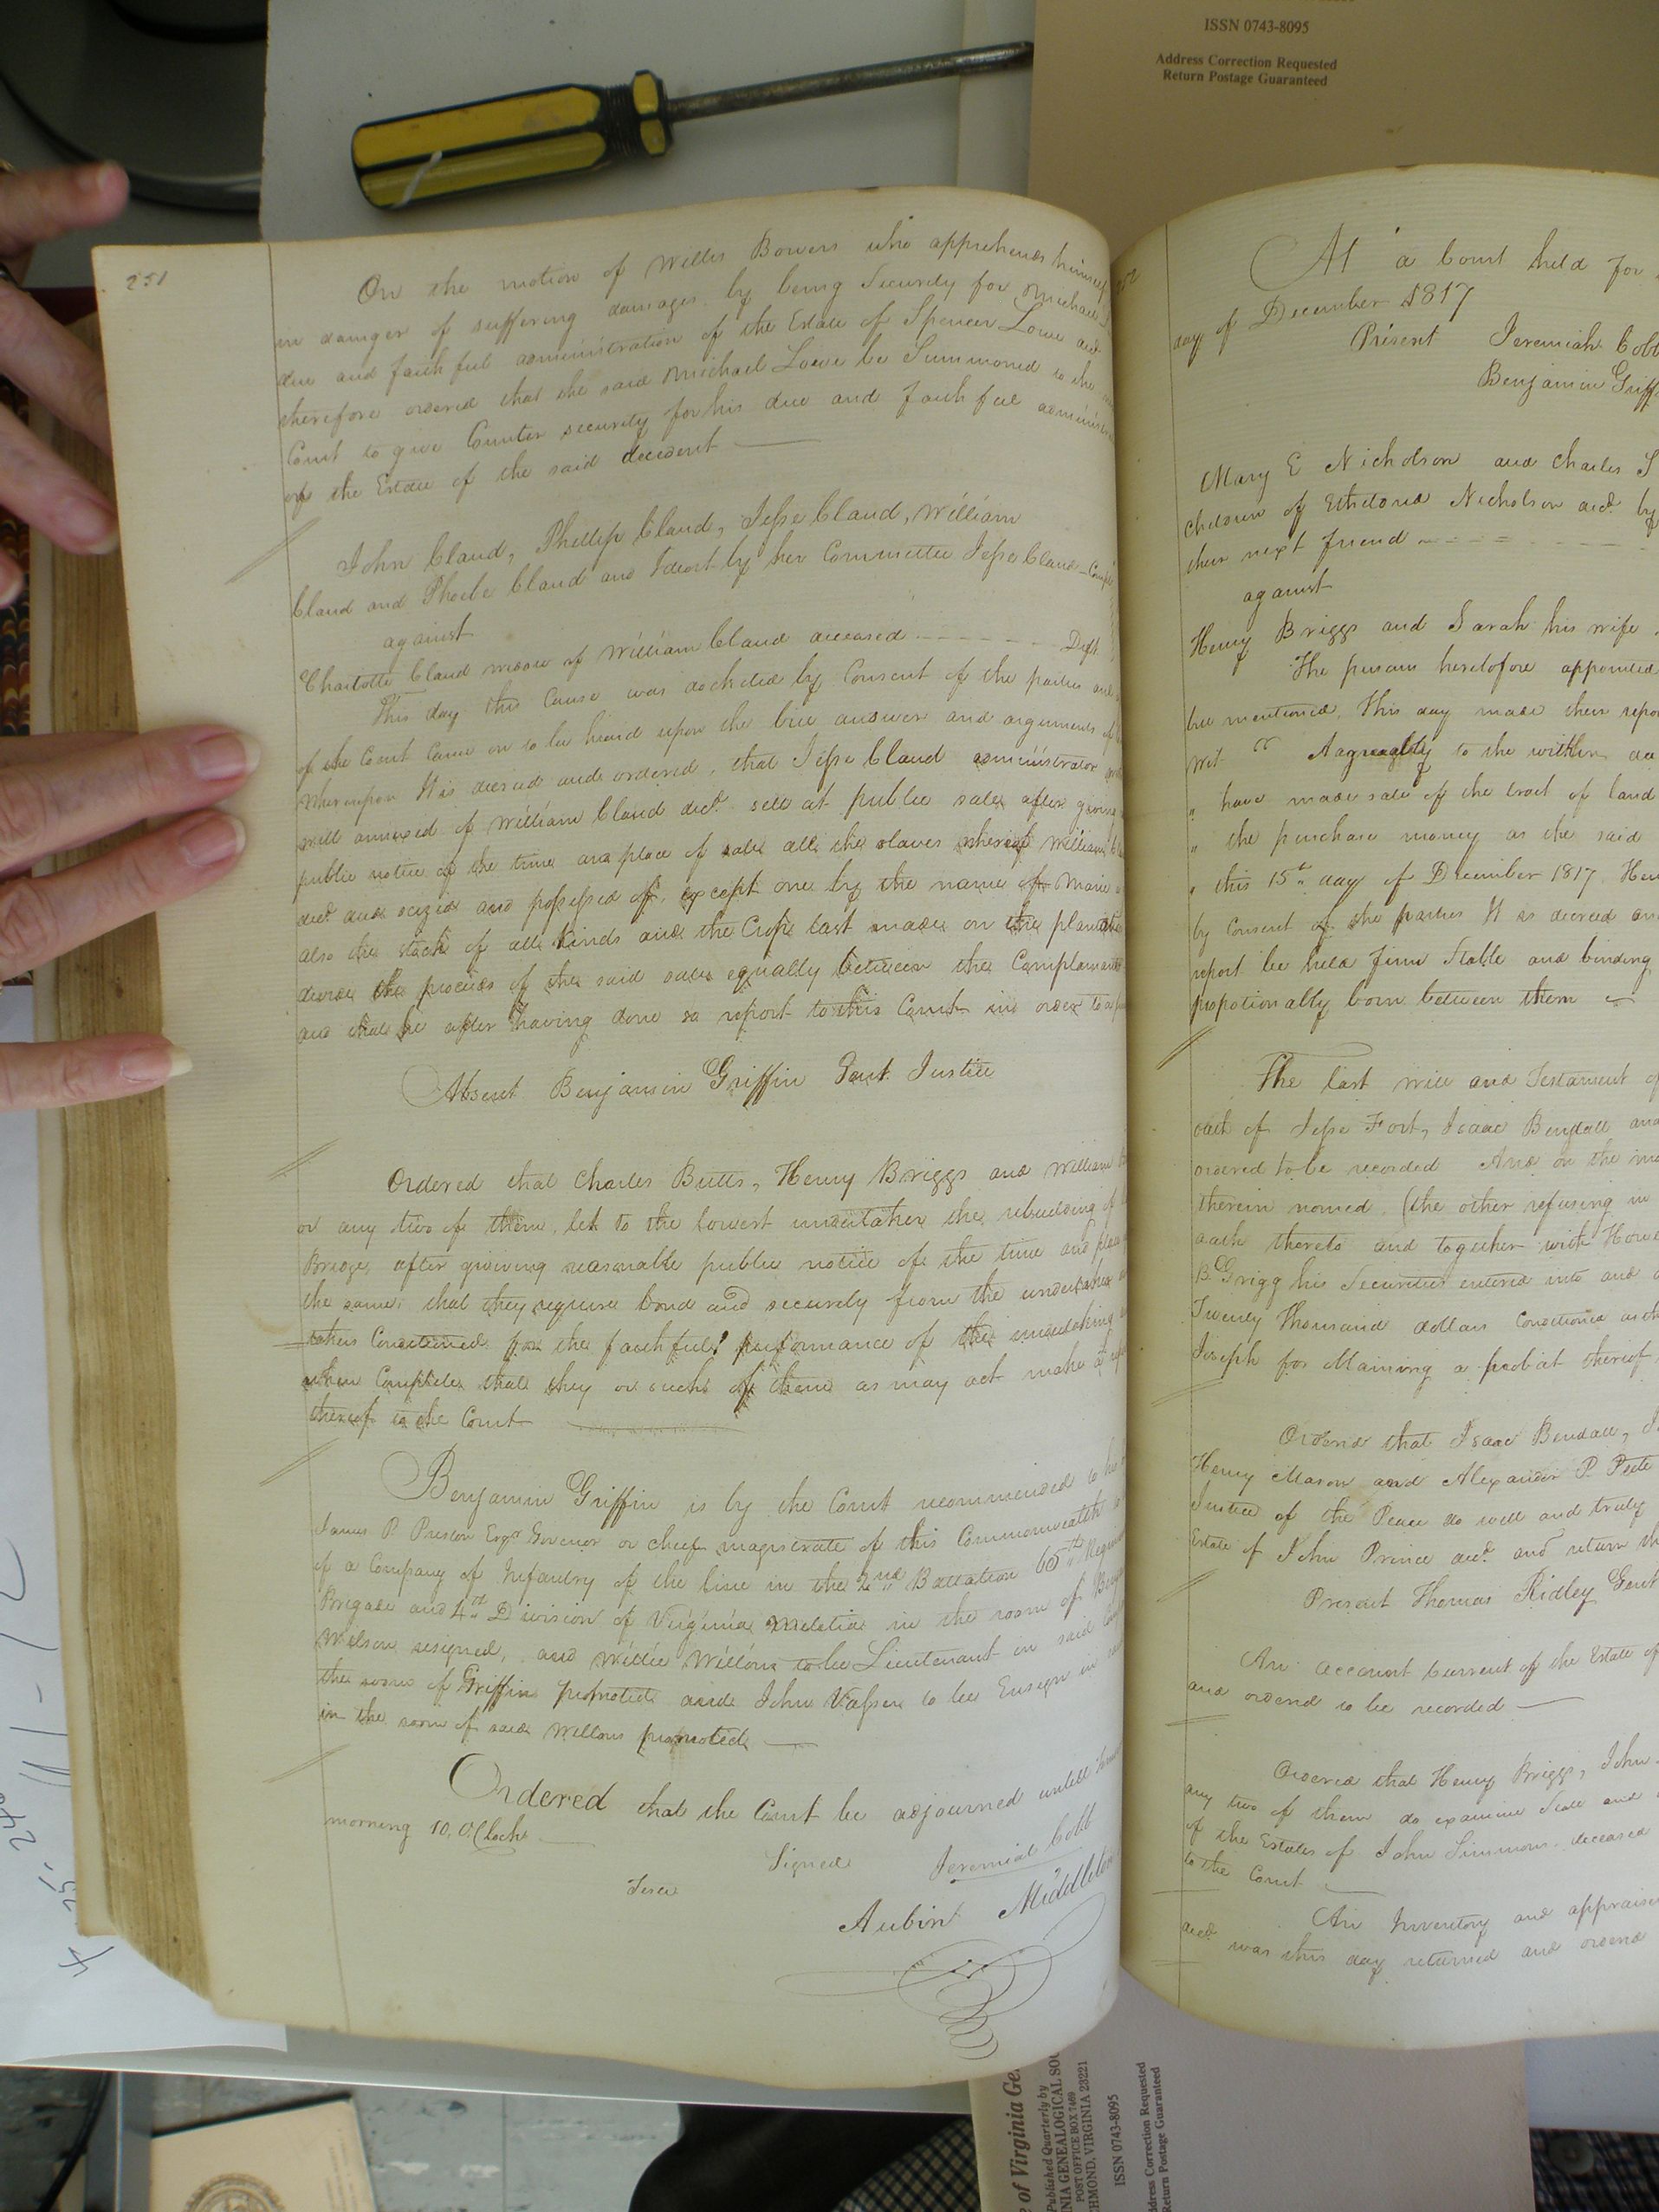 ISSN 0743-8095
Address Correction Requested
Return Postage Guaranteed
251
On the motion of Willis Bowers who apprehends himself
in danger of suffering damages by being Security for Michael
due and faithful administration of the Estate of Spencer Lowe decd
therefore ordered that the said Michael Lowe be Summoned to the
Court to give Counter security for his due and faithful
of the Estate of the said decedent
John Claud, Phillip Claud, Jesse Claud, William
Claud and Phoebe Claud and Ideot by her Committee Jesse Claud
against
Charlotte Claud widow of William Claud deceased Deft
This day this Cause was docketed by Consent of the parties and
of the Court Came on to be heard upon the bill answer and arguments of
Whereupon It is decreed and ordered, that Jesse Claud administrator
will annexed of William Claud decd. sell at public sale, after giving
public notice of the time and place of sale all the slaves whereof William
decd. died seized and possessed of, except one by the name of
also the stock of all Kinds and the Crops last made on the
devide the proceeds of the said sales equally between the
and that he after having done so report to this Court in order to
Absent Benjamin Griffin Gent. Justice
Ordered that Charles Butts, Henry Briggs and William
or any two of them, let to the lowest undertaker the rebuilding of
Bridge, after giveing reasonable public notice of the time and place
the same; that they require bond and security from the undertaker
takers Conditioned for the faithfull performance of the undertaking
when Completed that they or such of them as may act make a
thereof to the Court
Benjamin Griffin is by the Court recommended to
James P. Preston Esqr. Govenor or chief magistrate of this Commonwealth
of a Company of Infantry of the line in the 2nd Battation 65th
Brigade and 4th Division of Virginia Melitia in the room of
Wilson resigned, and Willie Willons to be Lieutenant in said
the room of Griffin promoted and John Vasser to be Ensign in
in the room of said Willons promoted
Ordered that the Court be adjourned untill
morning 10. O,Clock
Signed Jeremiah Cobb
Teste
Aubin Middleton
At a Court held for
day of December 1817
Present Jeremiah Cobb
Benjamin Griff
Mary E Nicholson and Charles S
children of Etheldred Nicholson decd. by
their next friend
against
Henry Briggs and Sarah his wife
The persons heretofore appointed
bill mentioned, This day made their repo
wit Aagreeably to the within
" have made sale of the tract of land
" the purchase money as the said
" this 15th day of December 1817
by Consent of the parties It is decreed an
report be held firm Stable and binding
propotionally born between them
The last will and Testament of
oath of Jesse Fort, Isaac Bendall and
ordered to be recorded And on the mo
therein named, (the other refusing in
oath thereto and together with Howe
B. Grigg his Securities entered into and
Twenty Thousand dollars Conditioned as th
Joseph for obtaining a probat thereof
Ordered that Isaac Bendall, J
Henry Mason and Alexander P. Peete
Justice of the Peace do well and truly
Estate of John Prince decd. and return th
Present Thomas Ridley Gent
An account Current of the Estate of
and ordered to be recorded
Ordered that Henry Briggs, John
any two of them do examine State and
of the Estate of John Simmons deceased
to the Court
An Inventory and appraise
decd. was this day returned and ordered
of Virginia Ge
Published Quarterly by
NIA GENEALOGICAL SOC
POST OFFICE BOX 7469
HMOND, VIRGINIA 23221
ISSN 0743-8095
ddress Correction Requested
Return Postage Guaranteed